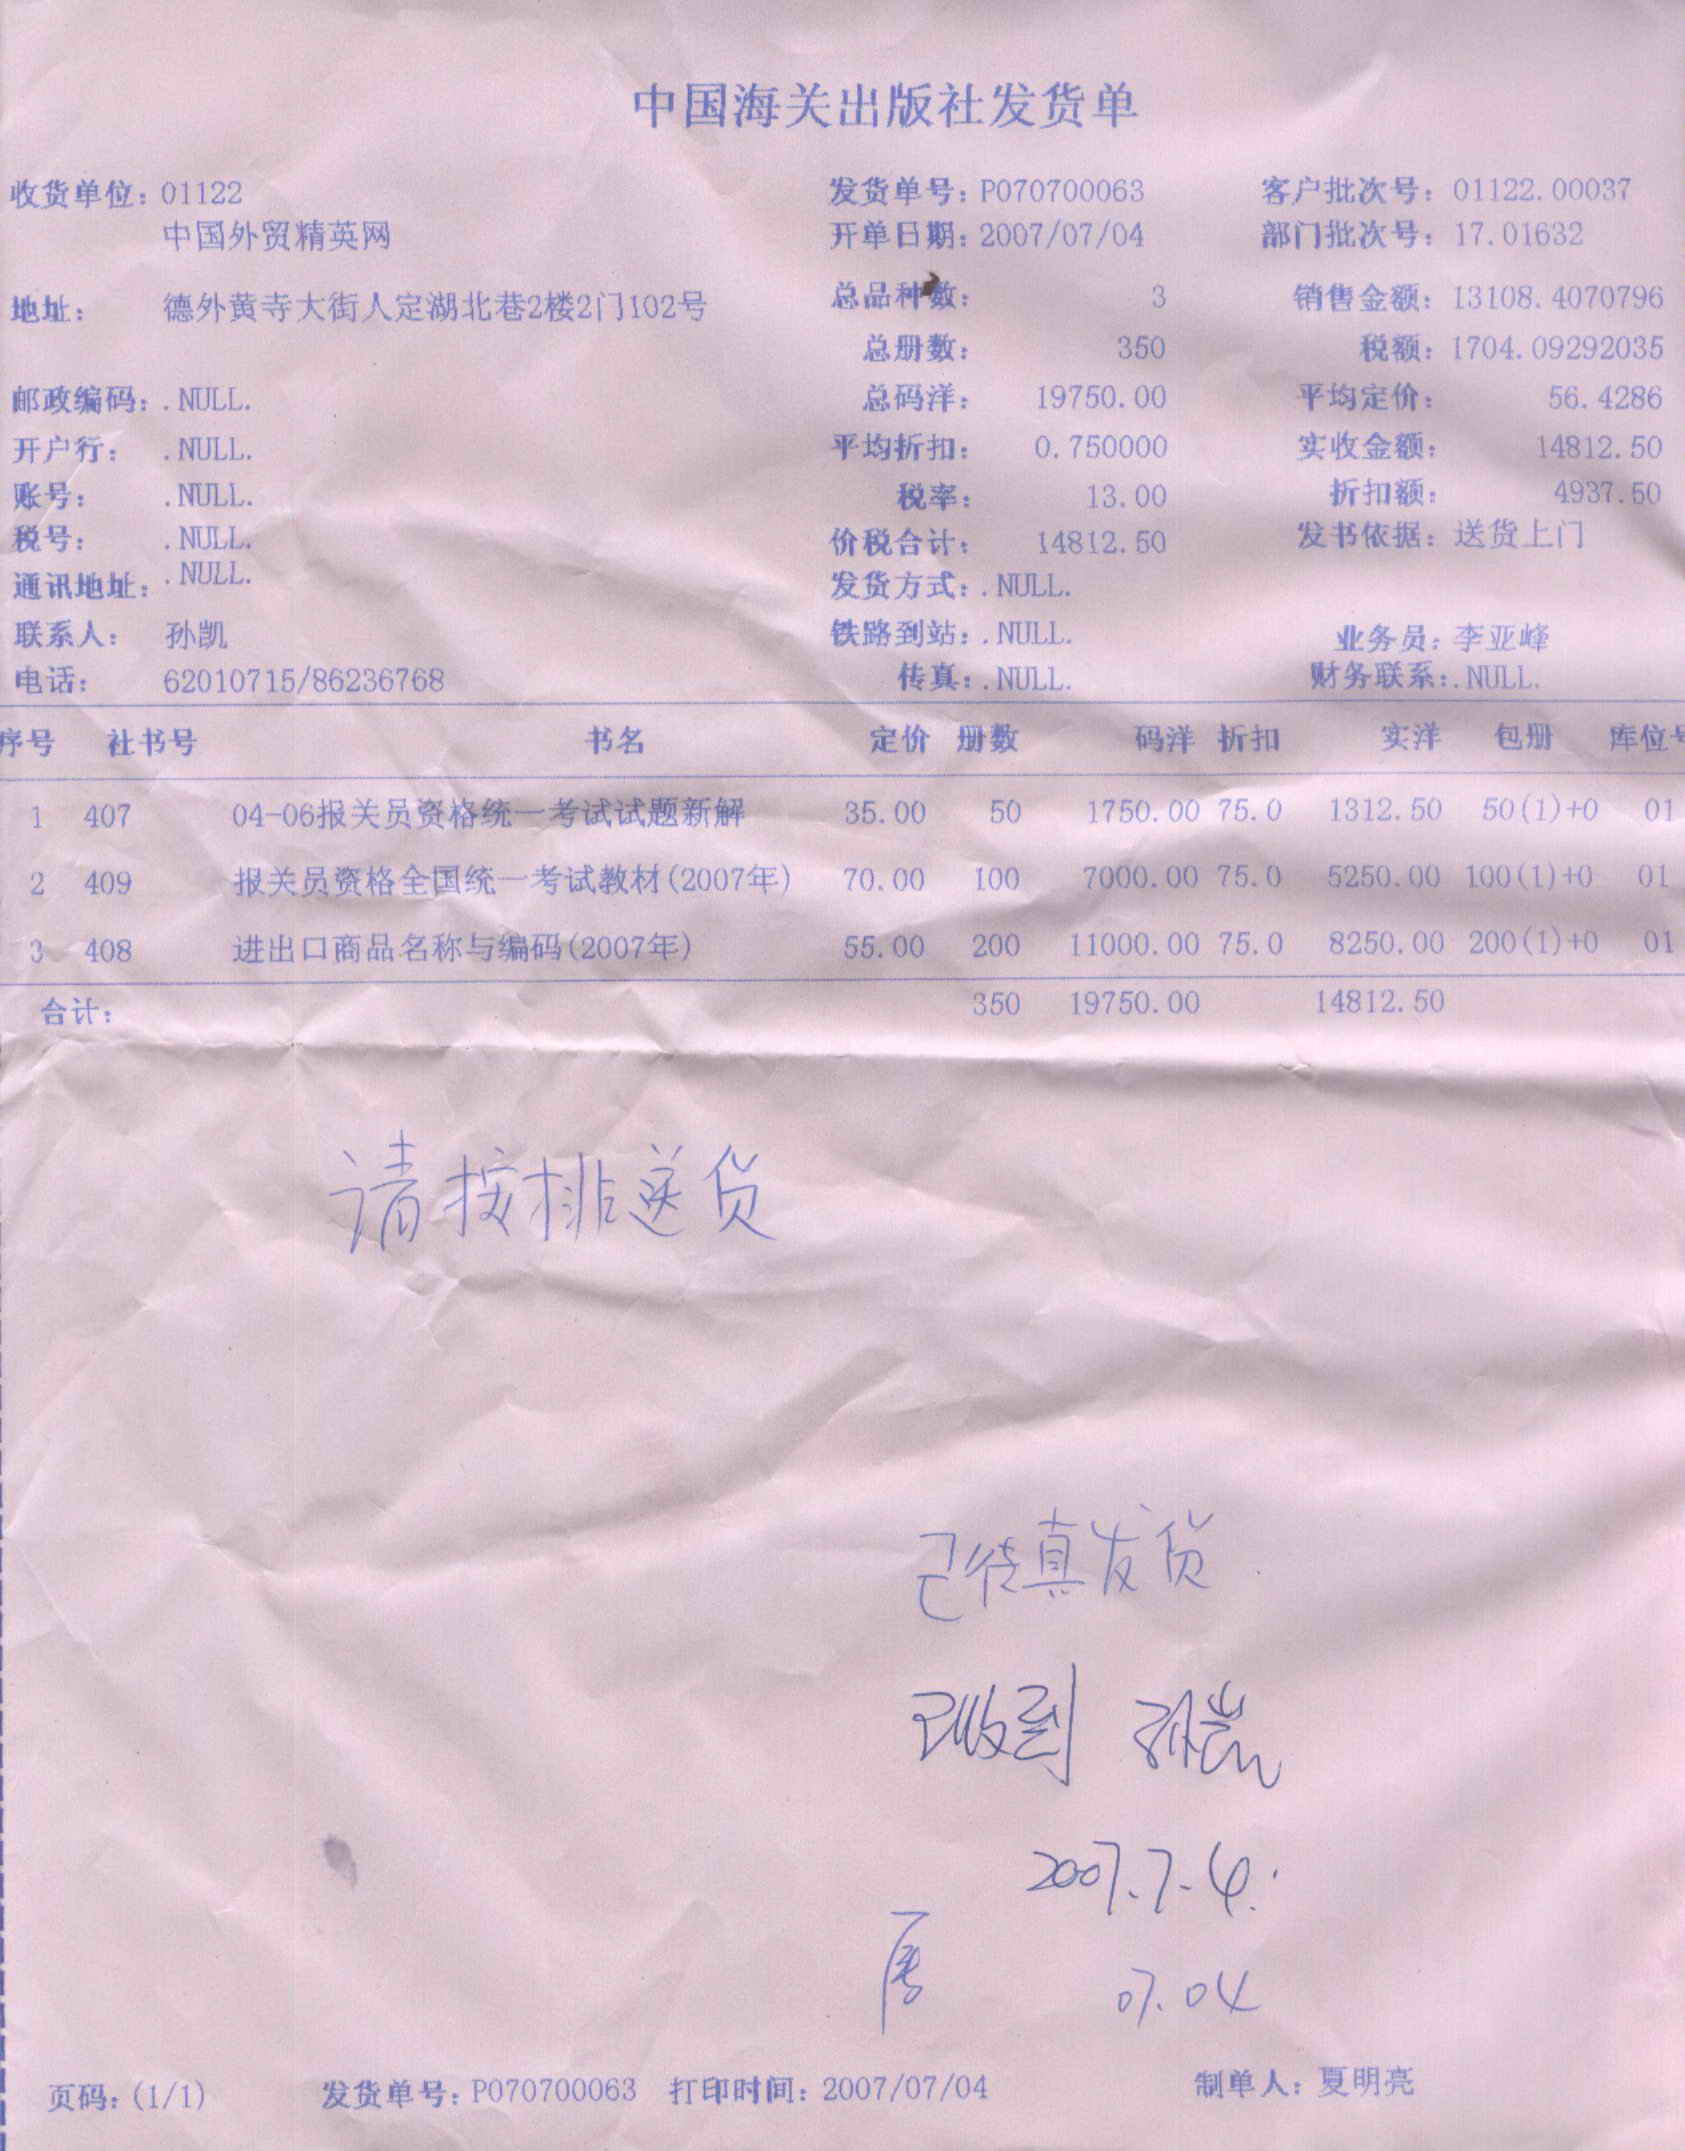 中国海关出版社发货单
收货单位：01122 发货单号：P070700063 客户批次号：01122.00037
中国外贸精英网 开单日期：2007/07/04 部门批次号：17.01632
地址： 德外黄寺大街人定湖北巷2楼2门102号 总品种数： 3 销售金额：13108.4070796
总册数： 350 税额：1704.09292035
邮政编码：.NULL. 总码洋： 19750.00 平均定价： 56.4286
开户行： .NULL. 平均折扣： 0.750000 实收金额： 14812.50
账号： .NULL. 税率： 13.00 折扣额： 4937.50
税号： .NULL. 价税合计： 14812.50 发书依据：送货上门
通讯地址：.NULL. 发货方式：.NULL.
联系人： 孙凯 铁路到站：.NULL. 业务员：李亚峰
电话： 62010715/86236768 传真：.NULL. 财务联系：.NULL.
序号 社书号 书名 定价 册数 码洋 折扣 实洋 包册 库位号
1 407 04-06报关员资格统一考试试题新解 35.00 50 1750.00 75.0 1312.50 50(1)+0 01
2 409 报关员资格全国统一考试教材(2007年) 70.00 100 7000.00 75.0 5250.00 100(1)+0 01
3 408 进出口商品名称与编码(2007年) 55.00 200 11000.00 75.0 8250.00 200(1)+0 01
合计： 350 19750.00 14812.50
请按排送货
已传真发货
已收到 孙凯
2007.7.4.
07.04
页码：(1/1) 发货单号：P070700063 打印时间：2007/07/04 制单人：夏明亮